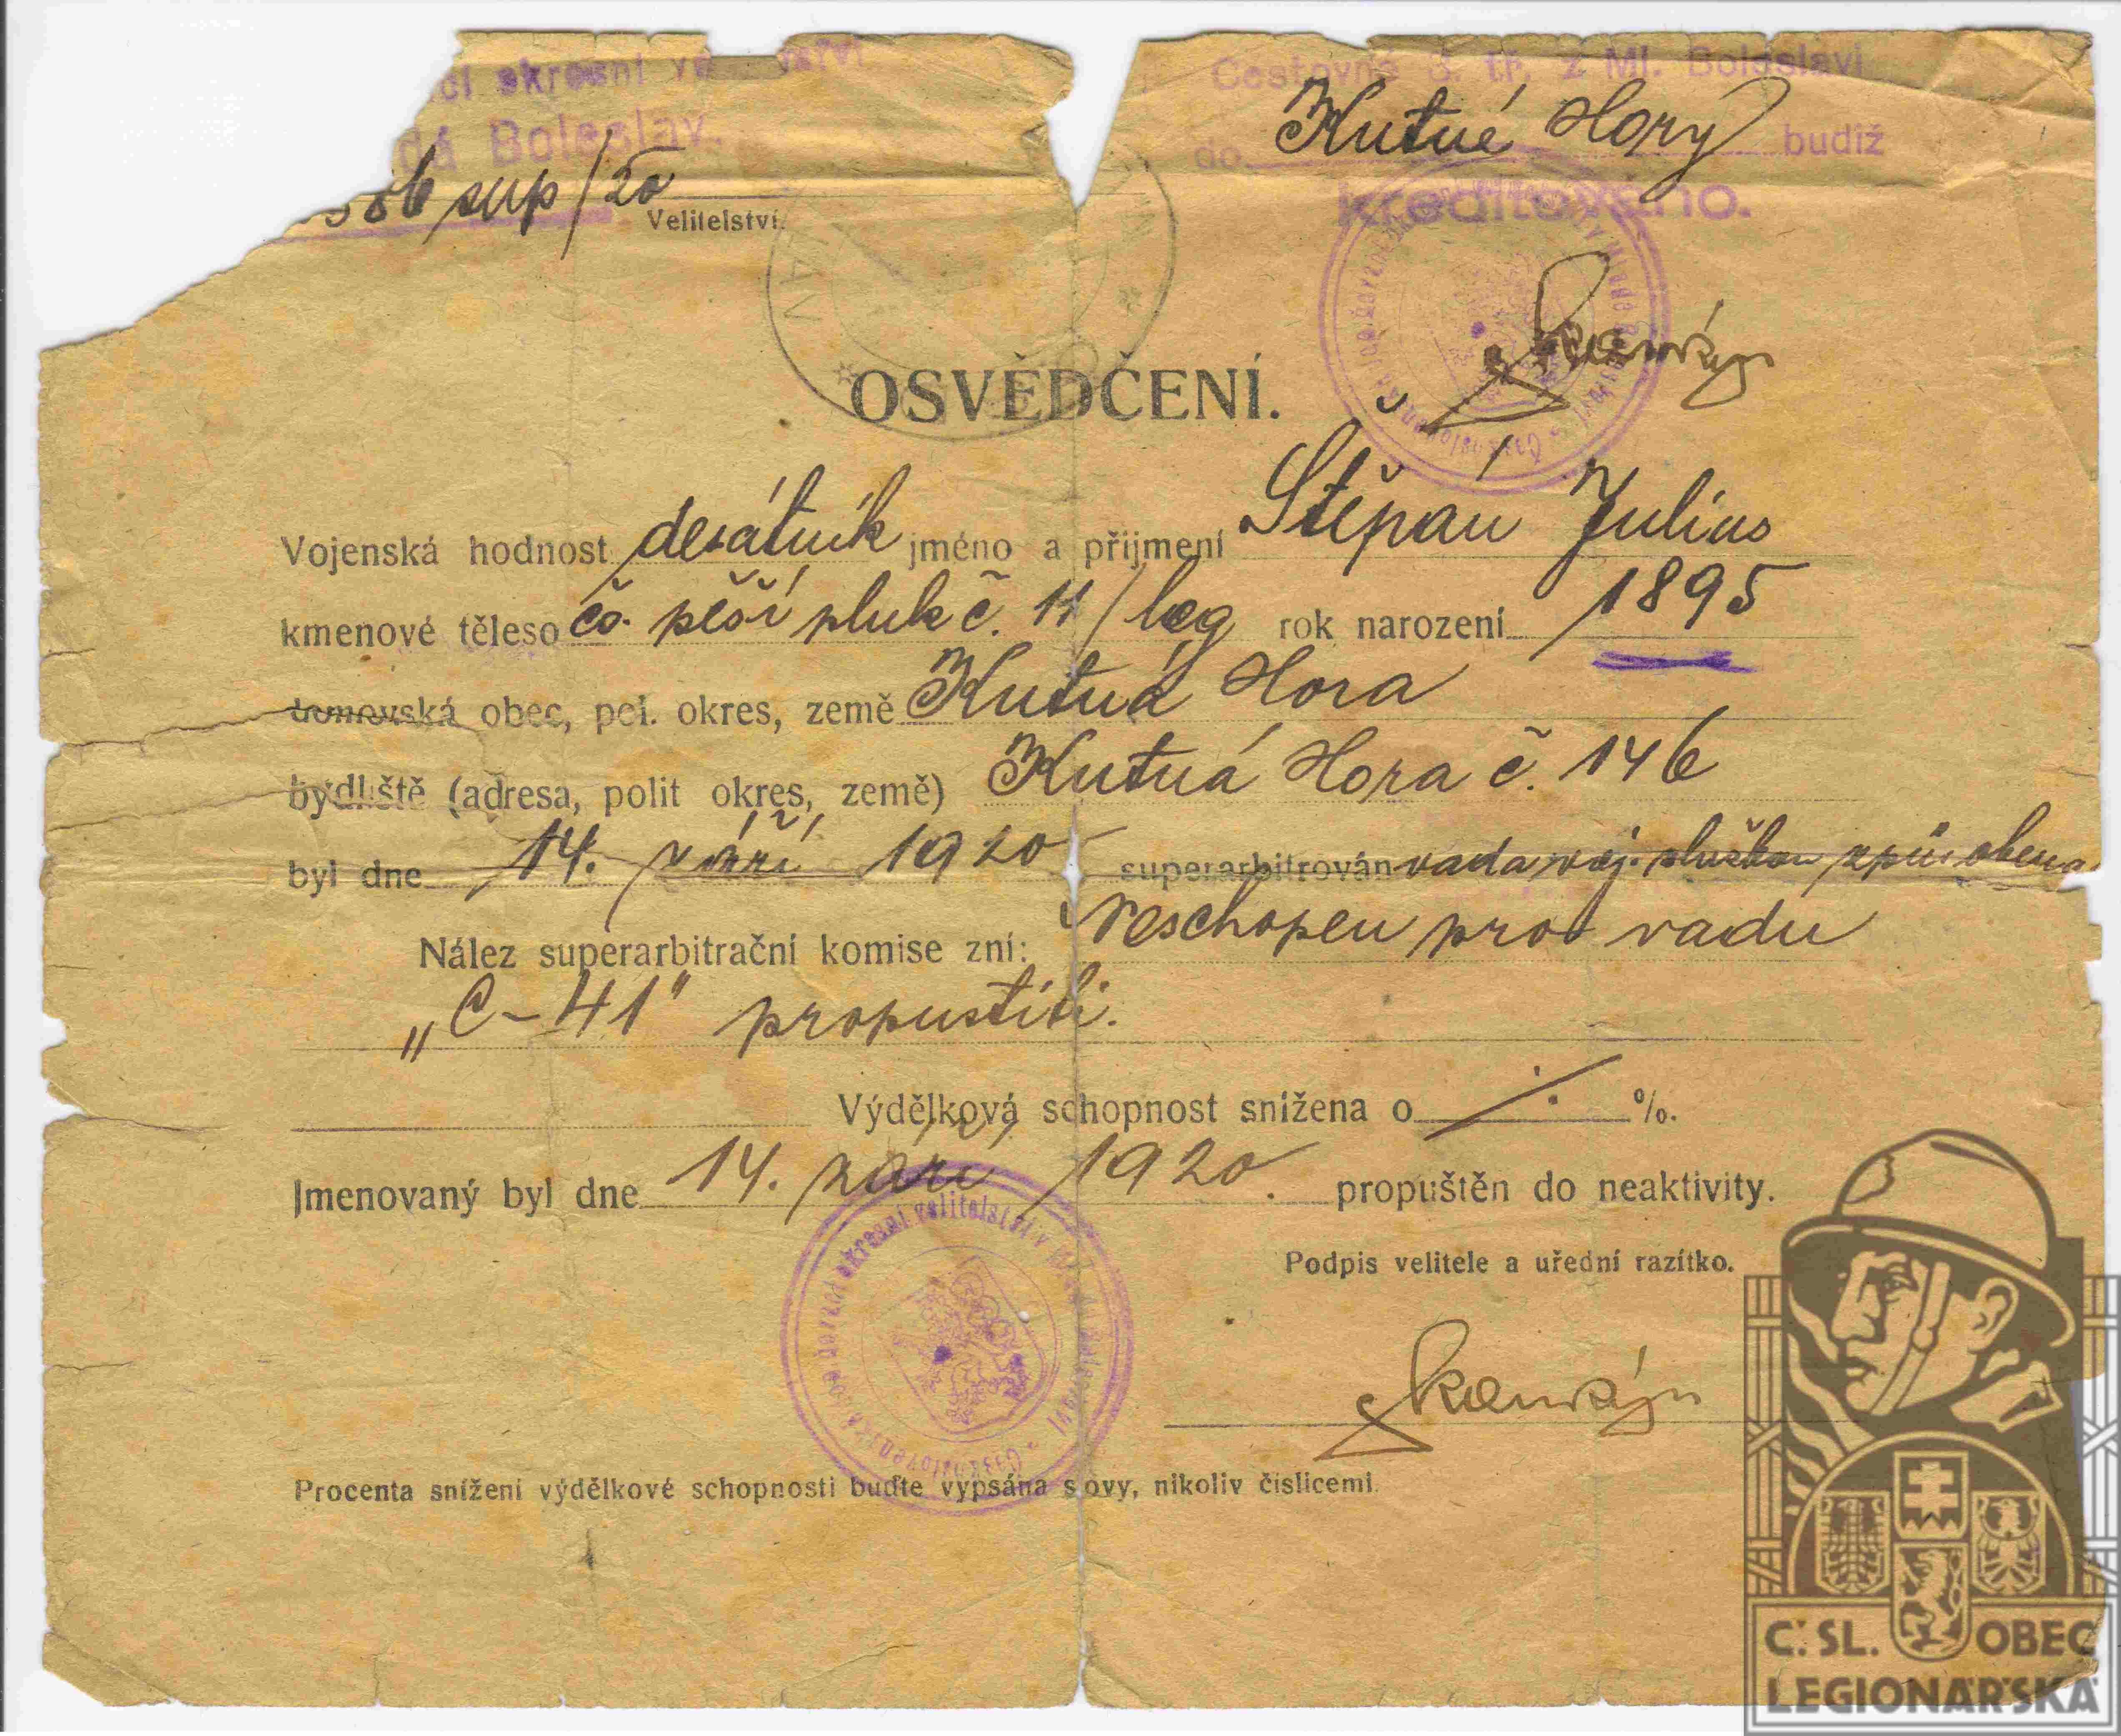 cí okresní velitelství
dá Boleslav.
586 sup/20
Velitelství.
Cestovné 3. tř. z Ml. Boleslavi
do Kutné Hory budiž
kreditováno.
OSVĚDČENÍ.
Vojenská hodnost desátník jméno a přijmení Štěpán Julius
kmenové těleso čs. pěší pluk č. 11/leg rok narození 1895
domovská obec, pol. okres, země Kutná Hora
bydliště (adresa, polit okres, země) Kutná Hora č. 146
byl dne 14. září 1920 superarbitrován vada voj. službou způsobena
Nález superarbitrační komise zní: Neschopen pro vadu
„C-41" propustiti.
Výdělková schopnost snížena o ./. %.
Jmenovaný byl dne 14. září 1920. propuštěn do neaktivity.
Podpis velitele a uřední razítko.
Procenta snížení výdělkové schopnosti buďte vypsána slovy, nikoliv číslicemi.
Č. SL. OBEC
LEGIONÁŘSKÁ